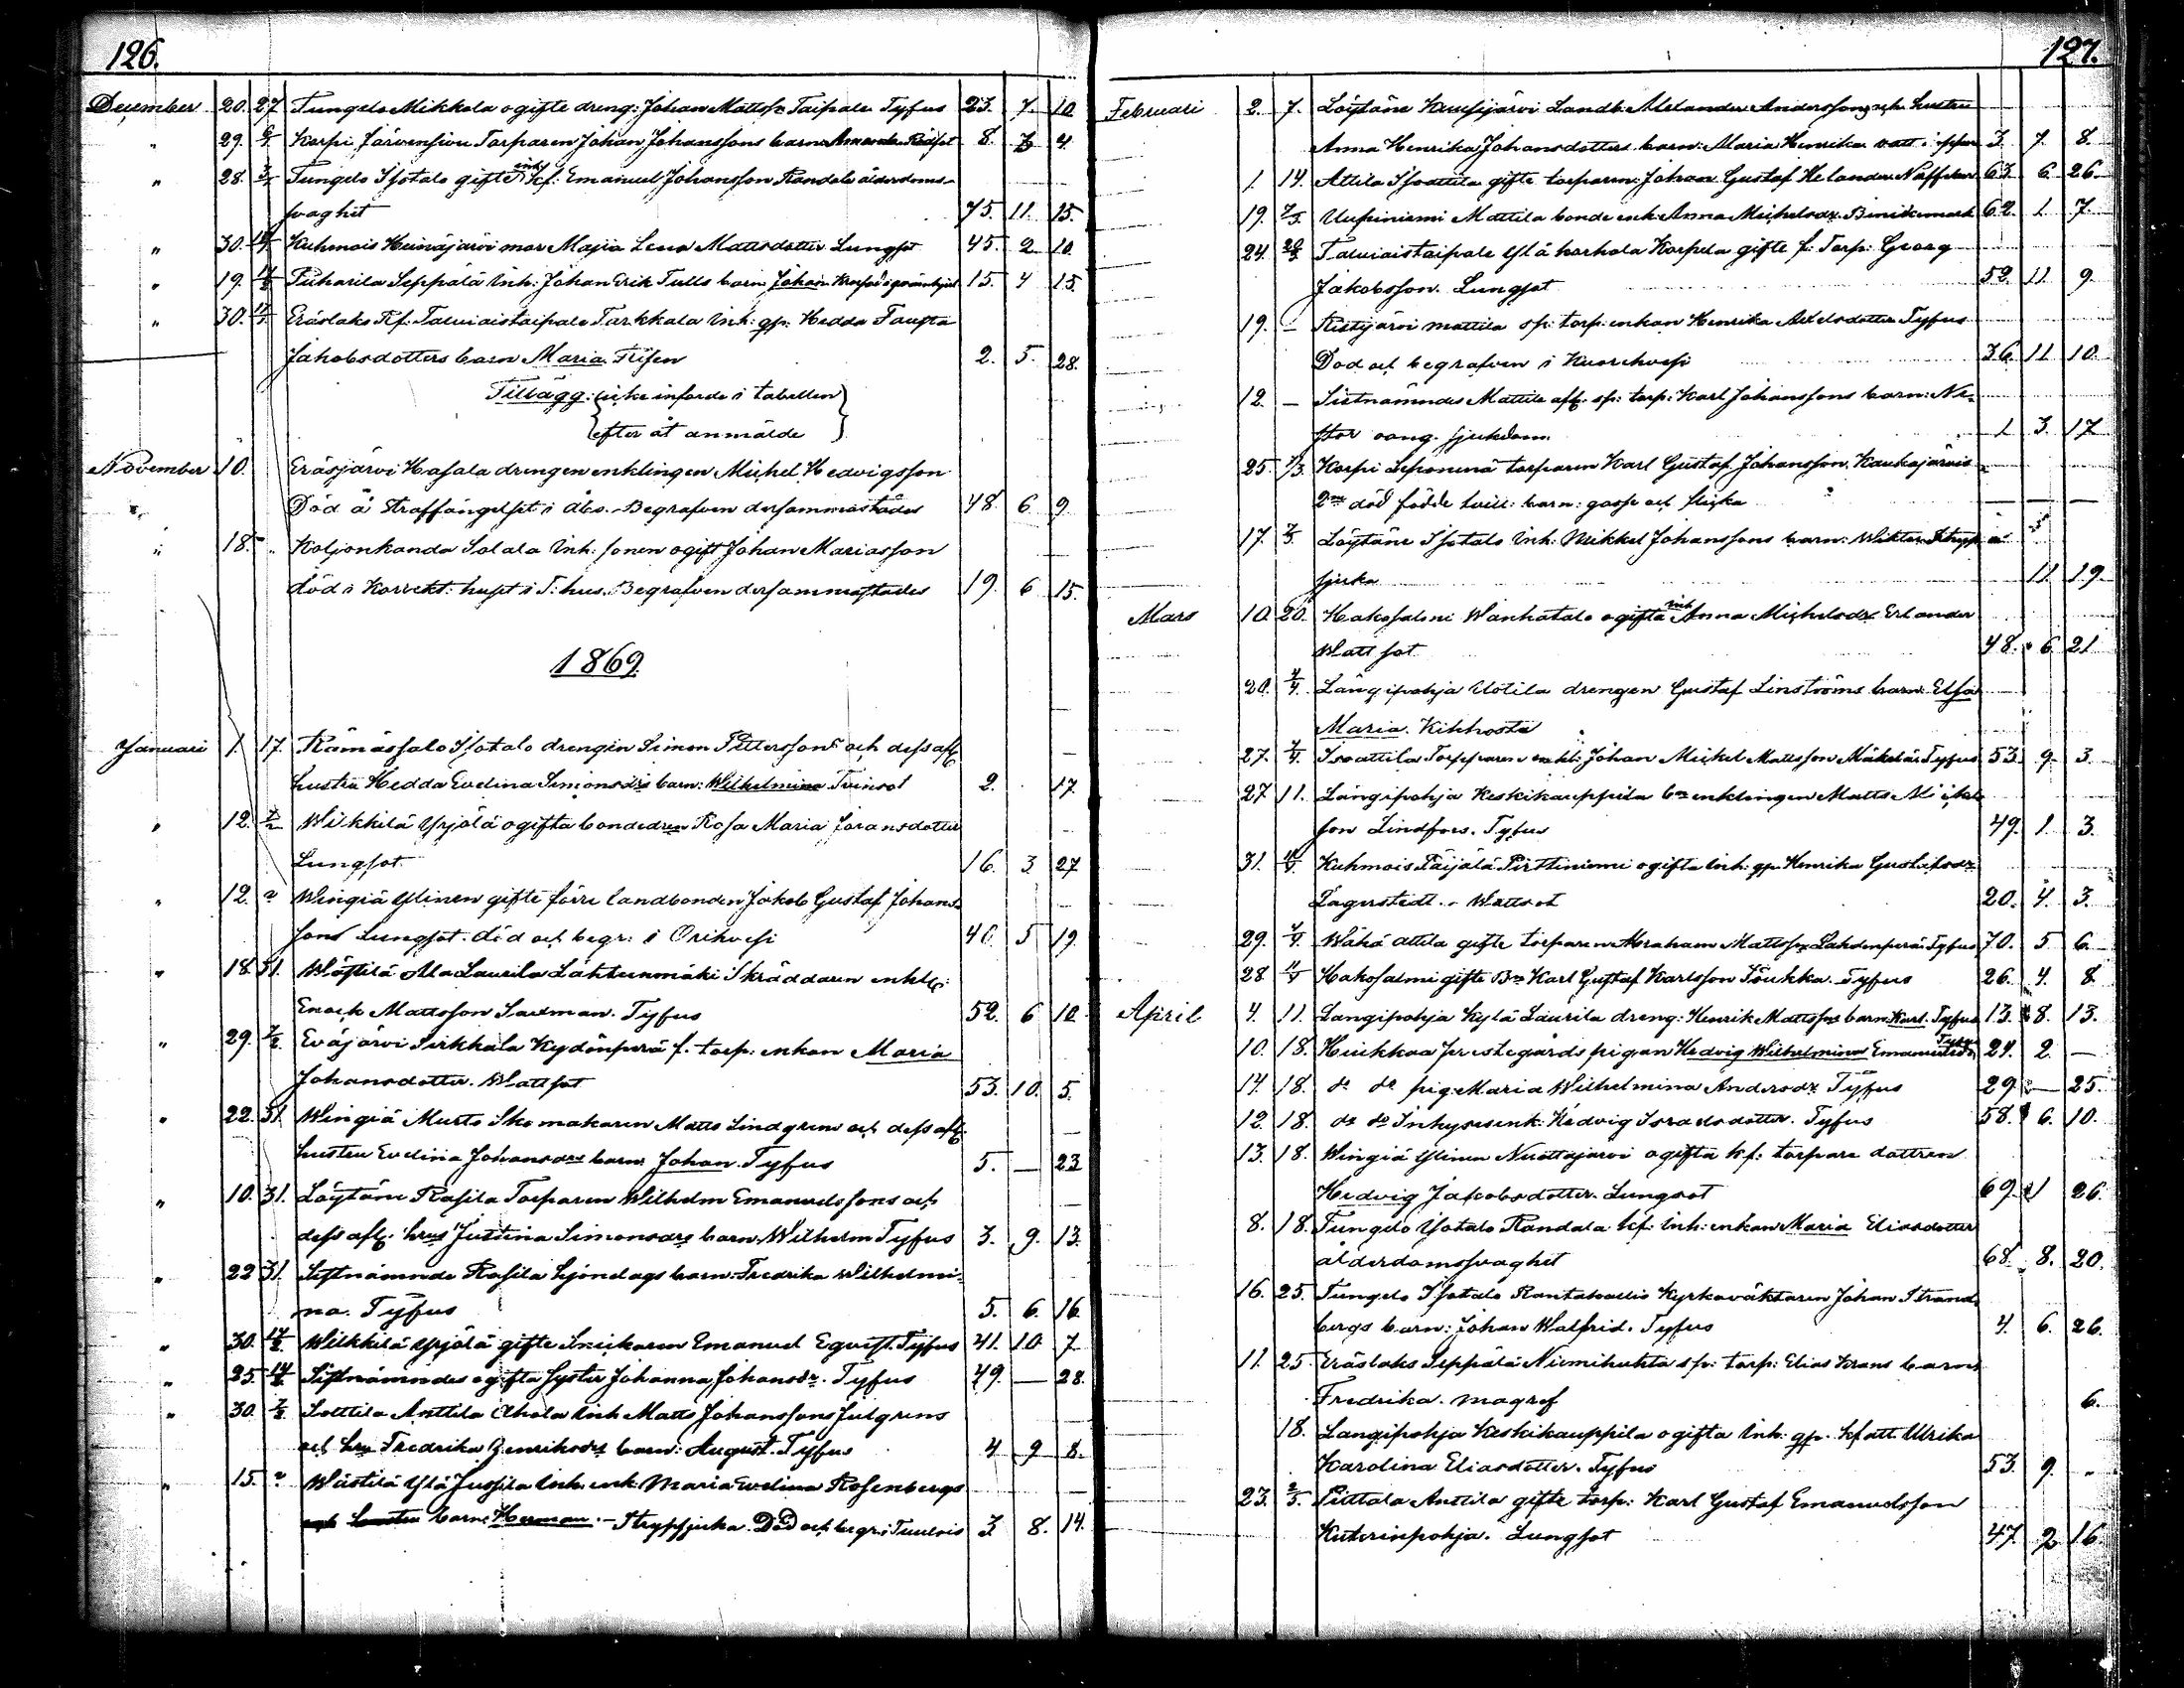 126.
December 20. 27 Tungelo Mikkola ogifte dreng: Johan Mattss: Taipale Tyfus 23. 7. 10
" 29. 6/1 Korpi Järvensivu Torparen Johan Johanssons barn Amanda Rödsot 8. 3 4.
" 28. 3/1 Tungelo Isotalo gifte inh kf: Emanuel Johansson Randala ålderdoms-
svaghet 75. 11. 15.
" 30. Kuhmois Heinäjärvi mor Maja Lena Mattsdotter Lungsot 45. 2 10.
" 19. Puharila Seppälä Inh: Johan Erik Tulls barn Johan 15. 4 15.
" 30. Eräslaks Kf: Talviaistaipale Tarkkala Inh: gp: Hedda Faufta
Jakobsdotters barn Maria Trisen 2. 5. 28.
Tillägg: icke införde i tabellen
efter åt anmälde
November 10. Eräsjärvi Hasala drengen enklingen Michel Hedvigsson
Död å straffängelset i Åbo. Begrafven dersammastädes 48. 6 9
" 18. Koljonkanda Salala Inh: sonen ogift Johan Mariasson
död i Korrekt: huset i T:hus. Begrafven dersammastädes 19. 6 15.
1869.
Januari 1. 17. Rämässalo Isotalo drengen Simon Petterssons och dess afl:
hustru Hedda Evelina Simonsdrs barn: Wilhelmina Tvinsot 2. 17.
" 12. 7/2 Wilkkilä Yrjölä ogifta bondedren Rosa Maria Joransdotter
Lungsot 16. 3 27
" 12. " Wingiä Ylinen gifte förre landbonden Jakob Gustaf Johans-
sons Lungsot. död och begr: i Orihvesi 40. 5 19.
" 18. 31. Wästilä Ala Laurila Lähteenmäki Skräddaren enkl:
Enock Mattsson Saxman. Tyfus 52. 6 10.
" 29. 7/2. Eväjärvi Sirkkala Kydönperä f. torp: enkan Maria
Johansdotter. Wattsot 53. 10. 5.
" 22. 31. Wingiä Murto Skomakaren Matts Lindgrens och dess afl:
hustru Evelina Johansdrs barn Johan. Tyfus 5. — 23
" 10. 31. Löytäne Rasila Torparen Wilhelm Emanuelssons och
dess afl: hrus Justina Simonsdrs barn Wilhelm Tyfus 3. 9. 13.
" 22 31. Sistnämnde Rasila barn: Fredrika Wilhelmi-
na. Tyfus 5. 6. 16
" 30. 14/2 Wilkkilä Yrjölä gifte Snickaren Emanuel Eqvist. Tyfus 41. 10 7
" 25. 14/2 Sistnämndes ogifta syster Johanna Johansdr. Tyfus 49. — 28.
" 30. 7/2. Solttila Anttila Ahola Inh Matts Johanssons Julgrens
och hru Fredrika Henriksdrs barn: August. Tyfus 4 9 8.
" 15. " Wästilä Ylä Jussila Inh: enk Maria Evelina Rosenbergs
barn: Herman. — Strypsjuka. Död och begr: i Tuulois 3. 8. 14.
127.
Februari 2. 7. Löytäne Kausijärvi Landb: Melander Anderssons och hustru
Anna Henrika Johansdotters barn: Maria Henrika 3. 7. 8.
1. 14. Attila Isoattila gifte torparen Johan Gustaf Helander 63. 6. 26
19. 7/3. Uusiniemi Mattila bonde enk Anna Michelsdr. 62. 1. 7.
24. Talviaistaipale Ylä harhala Korpela gifte f: Torp: Georg
Jakobsson. Lungsot 52. 11. 9.
19. — Ristijärvi Mattila sp: torp: enkan Henrika Axelsdotter Tyfus
Död och begrafven i Kuorehvesi 36. 11 10.
12. — Sistnämndes Mattila afl: sp: torp: Karl Johanssons barn: Ne-
stor oang. sjukdom. 1 3. 17
25. 7/3. Korpi Seponenä torparen Karl Gustaf Johansson Kaukajärvis
2ne död födde tvill: barn: gosse och flicka — — —
17. 7/3. Löytäne Isotalo Inh: Mikkel Johanssons barn: Wiktor Stryp-
sjuka 11. 19.
Mars 10. 20. Hakosalmi Wanhatalo ogifta inh Anna Michelsdr Erlander
Wattsot 48. 6 21
20. 4/4. Långipohja Uotila drengen Gustaf Linströms barn: Elsa
Maria. Kikhosta
27. 4/4. Isoattila Torpparen enkl: Johan Mickel Mattsson Mäkelä Tyfus 53. 9. 3.
27 11. Långipohja Keskikauppila bm enklingen Matts Michels-
son Lindfors. Tyfus 49. 1. 3.
31. Kuhmois Päijälä Pirttiniemi ogifta Inh: gp Henrika Gustafsdr
Lagerstedt. - Wattsot 20. 4. 3.
29. 4/4. Wähä Attila gifte torparen Abraham Mattss: Lahdenperä Tyfus 70. 5. 6.
28 Hakosalmi gifte Bm Karl Gustaf Karlsson Töukka. Tyfus 26. 4. 8.
April 4. 11. Langipohja Kylä Laurila dreng: Henrik Mattsons barn: Karl. Tyfus 13. 8. 13.
10. 18. Keikkaa prestegårds pigan Hedvig Wilhelmina Emanuelsdr Tyfus 24. 2. —
14. 18. do do pig: Maria Wilhelmina Andersdr Tyfus 29 — 25.
12. 18. do do Inhyses enk: Hedvig Israelsdotter. Tyfus 58. 6. 10.
13. 18. Wingiä Ylinen Nuottajärvi ogifta kf: torpare dottren
Hedvig Jakobsdotter. Lungsot 69. 1 26.
8. 18. Tungelo Isotalo Randala kf: Inh: enkan Maria Eliasdotter
ålderdomssvaghet 68. 8. 20.
16. 25. Tungelo Isotalo Rantakallio Kyrkoväktaren Johan Strand-
bergs barn: Johan Walfrid. Tyfus 4. 6. 26.
11. 25. Eräslaks Seppälä Niemikuhta sp: torp: Elias Krans barn
Fredrika. magref 6.
18. Langipohja Keskikauppila ogifta Inh: gp. Ulrika
Karolina Eliasdotter. Tyfus 53. 9. "
23. 2/5. Pitttala Anttila gifte torp: Karl Gustaf Emanuelsson
Kuterinpohja. Lungsot 47. 2 16.